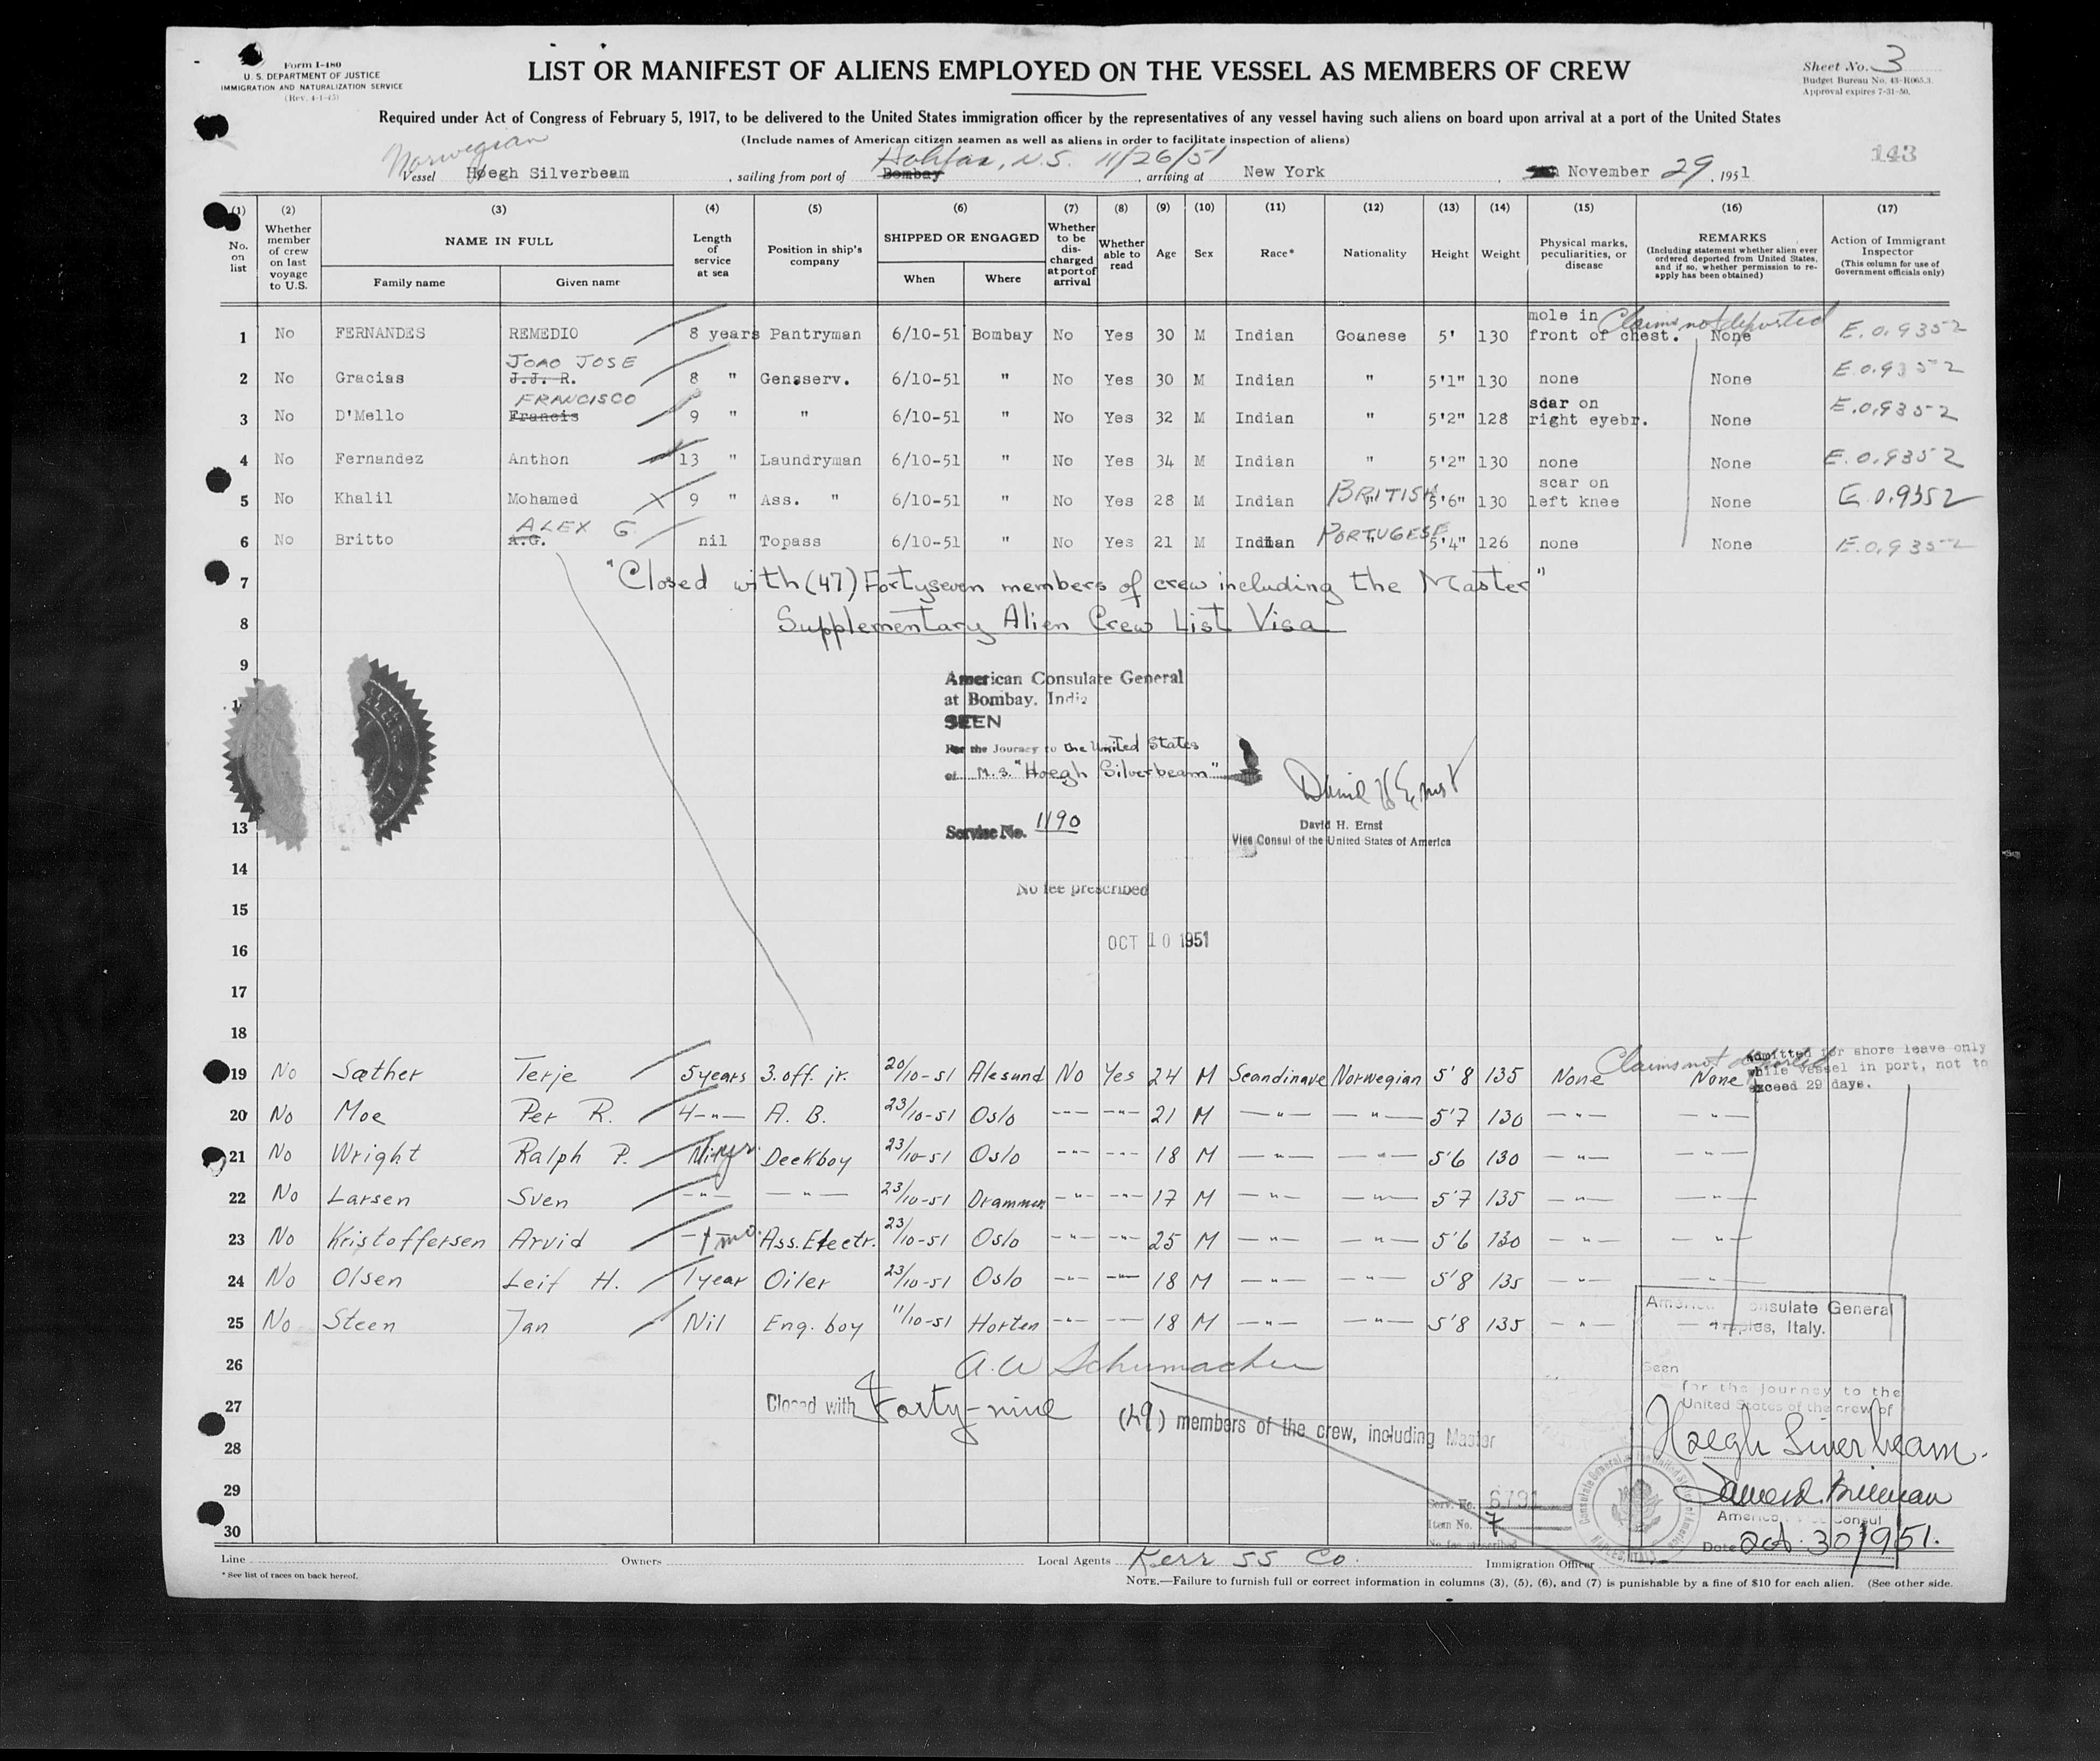 Form I-480
U. S. DEPARTMENT OF JUSTICE
IMMIGRATION AND NATURALIZATION SERVICE
(Rev. 4-1-45)
LIST OR MANIFEST OF ALIENS EMPLOYED ON THE VESSEL AS MEMBERS OF CREW
Sheet No. 3
Budget Bureau No. 43-R065.3.
Approval expires 7-31-50.
Required under Act of Congress of February 5, 1917, to be delivered to the United States immigration officer by the representatives of any vessel having such aliens on board upon arrival at a port of the United States
(Include names of American citizen seamen as well as aliens in order to facilitate inspection of aliens)
143
Norwegian
Halifax, N.S. 11/26/51
Vessel Høegh Silverbeam , sailing from port of Bombay , arriving at New York , November 29, 1951
(1) No. on list
(2) Whether member of crew on last voyage to U.S.
(3) NAME IN FULL Family name Given name
(4) Length of service at sea
(5) Position in ship's company
(6) SHIPPED OR ENGAGED When Where
(7) Whether to be discharged at port of arrival
(8) Whether able to read
(9) Age
(10) Sex
(11) Race*
(12) Nationality
(13) Height
(14) Weight
(15) Physical marks, peculiarities, or disease
(16) REMARKS (Including statement whether alien ever ordered deported from United States, and if so, whether permission to reapply has been obtained)
(17) Action of Immigrant Inspector (This column for use of Government officials only)
Claims not deported
1 No FERNANDES REMEDIO 8 years Pantryman 6/10-51 Bombay No Yes 30 M Indian Goanese 5' 130 mole in front of chest. None E.O.9352
JOAO JOSE
2 No Gracias J.J. R. 8 " Gen.serv. 6/10-51 " No Yes 30 M Indian " 5'1" 130 none None E.O.9352
FRANCISCO
3 No D'Mello Francis 9 " " 6/10-51 " No Yes 32 M Indian " 5'2" 128 scar on right eyebr. None E.O.9352
4 No Fernandez Anthon 13 " Laundryman 6/10-51 " No Yes 34 M Indian " 5'2" 130 none None E.O.9352
5 No Khalil Mohamed X 9 " Ass. " 6/10-51 " No Yes 28 M Indian BRITISH " 5'6" 130 scar on left knee None E.O.9352
ALEX G
6 No Britto A.G. nil Topass 6/10-51 " No Yes 21 M Indian PORTUGESE " 5'4" 126 none None E.O.9352
7 "Closed with (47) Fortyseven members of crew including the Master"
8 Supplementary Alien Crew List Visa
9
American Consulate General
at Bombay, India
SEEN
For the Journey to the United States
of M.S. "Hoegh Silverbeam"
David H Ernst
13
Service No. 1190
David H. Ernst
Vice Consul of the United States of America
14
No fee prescribed
15
16 OCT 10 1951
17
18
Claims not deported
Admitted for shore leave only
while vessel in port, not to
exceed 29 days.
19 No Sæther Terje 5 years 3. off. jr. 20/10-51 Alesund No Yes 24 M Scandinave Norwegian 5'8 135 None None
20 No Moe Per R. 4 -"- A. B. 23/10-51 Oslo -"- -"- 21 M -"- -"- 5'7 130 -"- -"-
21 No Wright Ralph P. Deckboy 23/10-51 Oslo -"- -"- 18 M -"- -"- 5'6 130 -"- -"-
22 No Larsen Sven -"- -"- 23/10-51 Drammen -"- -"- 17 M -"- -"- 5'7 135 -"- -"-
23 No Kristoffersen Arvid 1 mo. Ass. Electr. 23/10-51 Oslo -"- -"- 25 M -"- -"- 5'6 130 -"- -"-
24 No Olsen Leif H. 1 year Oiler 23/10-51 Oslo -"- -"- 18 M -"- -"- 5'8 135 -"- -"-
25 No Steen Jan Nil Eng. boy 11/10-51 Horten -"- -"- 18 M -"- -"- 5'8 135 -"- -"-
American Consulate General
Naples, Italy.
26 A. W Schumacher
Seen
for the journey to the
United States of the crew of
27 Closed with Forty-nine (49) members of the crew, including Master
28 Hoegh Silverbeam.
29
Serv. No. 6791
American Vice Consul
Item No. 7
No fee prescribed
30
Date Oct. 30/1951.
Line Owners Local Agents Kerr SS Co. Immigration Officer
* See list of races on back hereof.
NOTE.—Failure to furnish full or correct information in columns (3), (5), (6), and (7) is punishable by a fine of $10 for each alien. (See other side.